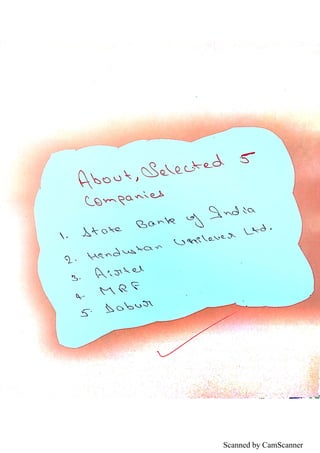 About, Selected 5
Companies
1. State Bank of India
2. Hindustan Unilever Ltd.
3. Airtel
4. MRF
5. Dabur
Scanned by CamScanner